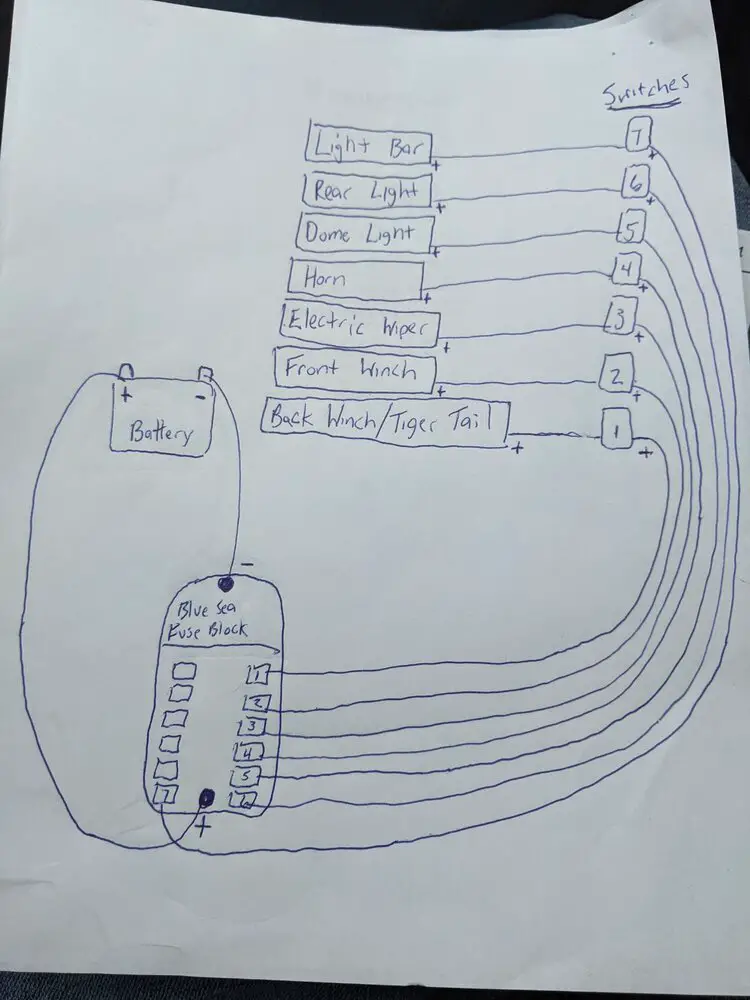 Switches
Light Bar + 7 +
Rear Light + 6 +
Dome Light + 5 +
Horn + 4 +
Electric Wiper + 3 +
Front Winch + 2 +
Back Winch/Tiger Tail + 1 +
+ -
Battery
-
Blue Sea
Fuse Block
1
2
3
4
5
7 6
+